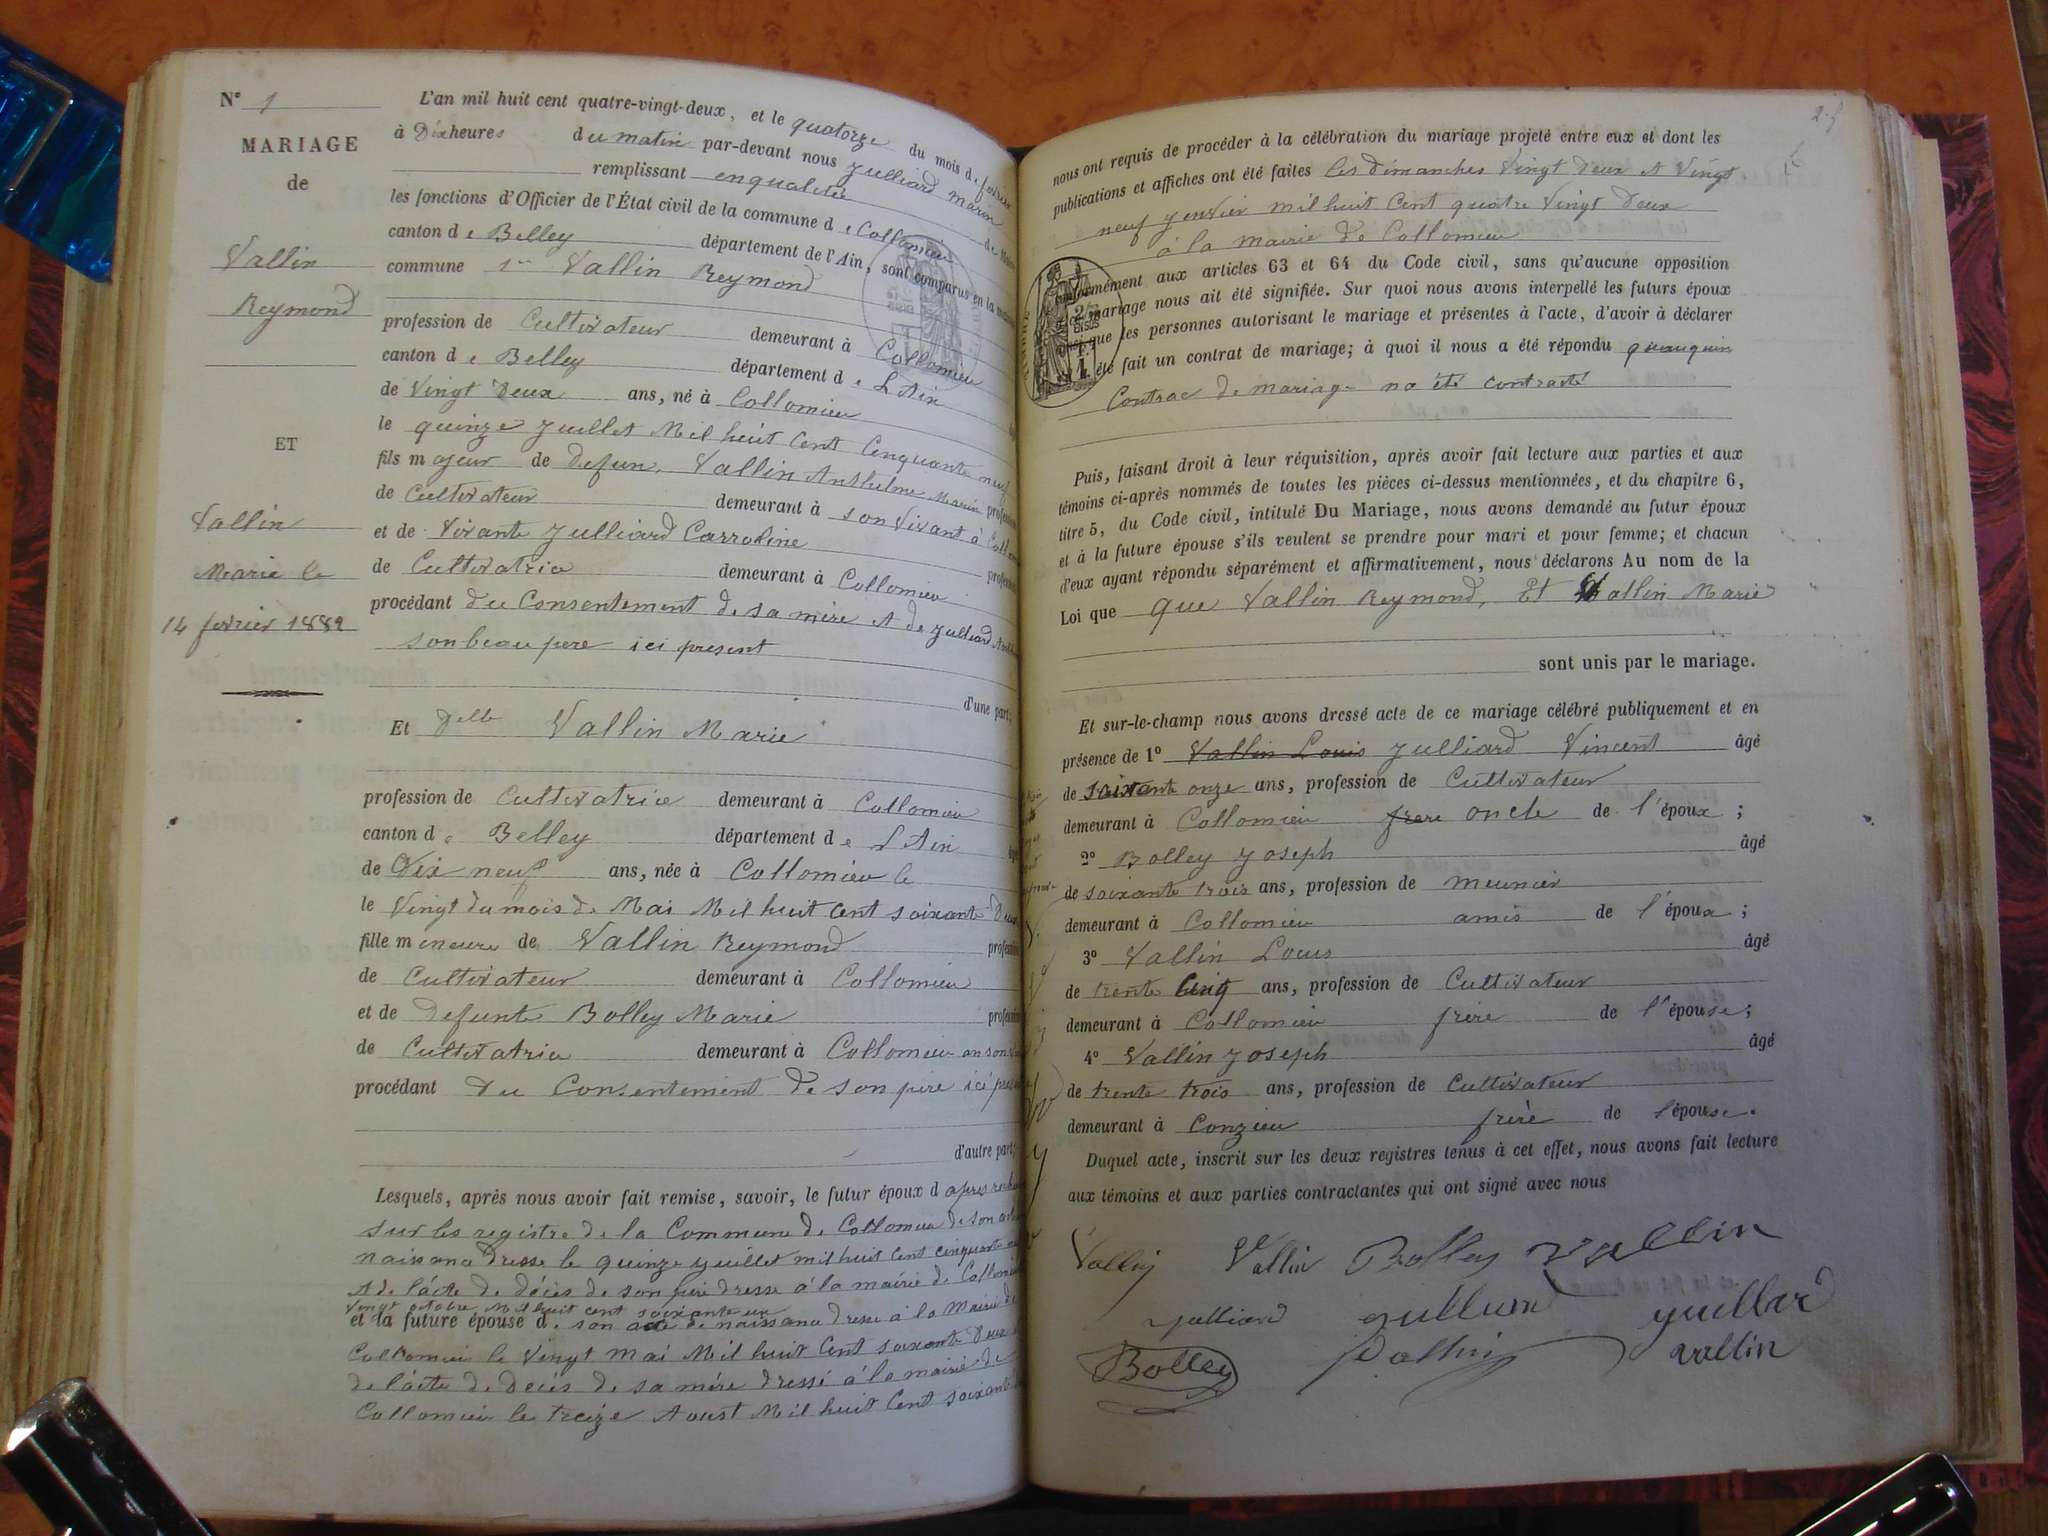 N° 1
MARIAGE
de
Vallin
Reymond
ET
Vallin
Marie le
14 fevrier 1882
L'an mil huit cent quatre-vingt-deux, et le quatorze du mois de fevrier
à Dix heures du matin par-devant nous Julliard Marin
remplissant en qualitée de Maire
les fonctions d'Officier de l'État civil de la commune de Collomieu
canton de Belley département de l'Ain, sont comparus en la maison
commune 1° Vallin Reymond
profession de Cultivateur demeurant à Collomieu
canton de Belley département de L'Ain
de Vingt Deux ans, né à Collomieu
le quinze Juillet Mil huit Cent Cenquante neuf
fils majeur de Defun. Vallin Anthelme Marin profession
de Cultivateur demeurant à son vivant à
et de Vivante Julliard Carroline profession
de Cultivatrice demeurant à Collomieu
procédant du Consentement de sa mère et de Julliard
son beau pere ici present
d'une part;
Et Delle Vallin Marie
profession de Cultivatrice demeurant à Collomieu
canton de Belley département de L'Ain
de Dix neuf ans, née à Collomieu le
le Vingt du mois de Mai Mil huit cent soixante Deux
fille mineure de Vallin Reymond profession
de Cultivateur demeurant à Collomieu
et de Defunte Bolley Marie profession
de Cultivatrice demeurant à Collomieu en son
procédant du Consentement de son père ici
d'autre part;
Lesquels, après nous avoir fait remise, savoir, le futur époux d apres
sur les registre de la Commune de Collomieu de son
naissance dresse le quinze Juillet mil huit cent cinquante
et de l'acte de décès de son père dresse à la mairie de Collomieu
Vingt octobre Mil huit cent soixante un
et la future épouse de son acte de naissance dresse à la Mairie de
Collomieu le Vingt Mai Mil huit Cent soixante Deux
de l'acte de Decès de sa mère dressé à la mairie de
Collomieu le treize Aoust Mil huit Cent soixante
25
nous ont requis de procéder à la célébration du mariage projeté entre eux et dont les
publications et affiches ont été faites les dimanches Vingt deux et Vingt
neuf Jenvier mil huit Cent quatre Vingt Deux
à la mairie de Collomieu
conformément aux articles 63 et 64 du Code civil, sans qu'aucune opposition
à ce mariage nous ait été signifiée. Sur quoi nous avons interpellé les futurs époux
ainsi que les personnes autorisant le mariage et présentes à l'acte, d'avoir à déclarer
s'il a été fait un contrat de mariage; à quoi il nous a été répondu quauquin
Contrac de mariage na été contracté
Puis, faisant droit à leur réquisition, après avoir fait lecture aux parties et aux
témoins ci-après nommés de toutes les pièces ci-dessus mentionnées, et du chapitre 6,
titre 5, du Code civil, intitulé Du Mariage, nous avons demandé au futur époux
et à la future épouse s'ils veulent se prendre pour mari et pour femme; et chacun
d'eux ayant répondu séparément et affirmativement, nous déclarons Au nom de la
Loi que que Vallin Reymond, Et Vallin Marie
sont unis par le mariage.
Et sur-le-champ nous avons dressé acte de ce mariage célébré publiquement et en
présence de 1° Vallin Louis Julliard Vincent âgé
de soixante onze ans, profession de Cultivateur
demeurant à Collomieu frere oncle de l'époux;
2° Bolley Joseph âgé
de soixante trois ans, profession de meunier
demeurant à Collomieu amis de l'époux;
3° Vallin Louis âgé
de trente Cinq ans, profession de Cultivateur
demeurant à Collomieu frère de l'épouse;
4° Vallin Joseph âgé
de trente trois ans, profession de Cultivateur
demeurant à Conzieu frère de l'épouse.
Duquel acte, inscrit sur les deux registres tenus à cet effet, nous avons fait lecture
aux témoins et aux parties contractantes qui ont signé avec nous
Vallin Vallin Bolley Vallin
Julliard Julliard Juillard
Bolley Vallin vallin